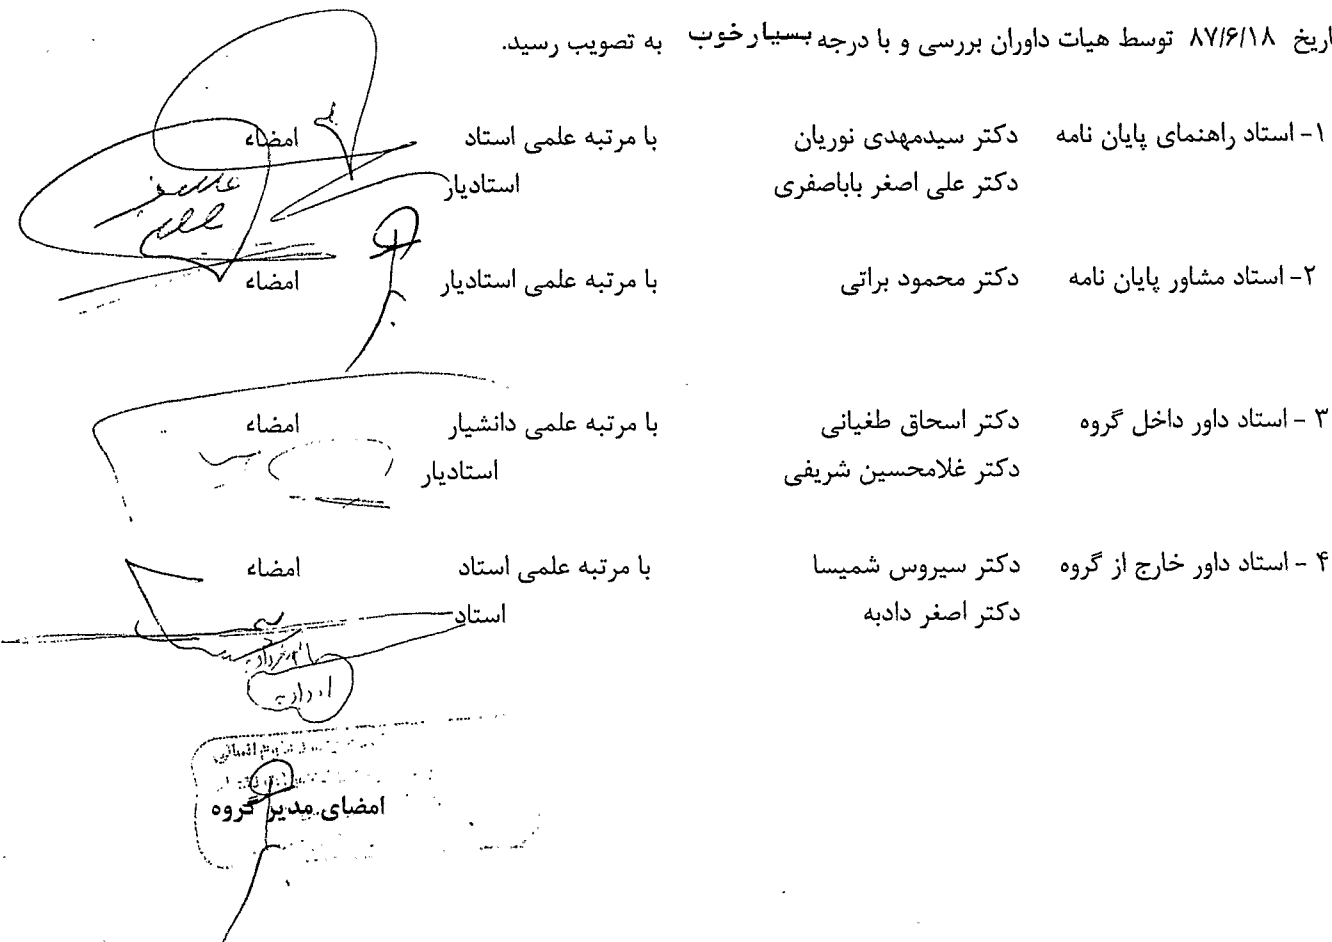 اریخ ۸۷/۶/۱۸ توسط هیات داوران بررسی و با درجه بسیار خوب به تصویب رسید.
۱- استاد راهنمای پایان نامه دکتر سیدمهدی نوریان با مرتبه علمی استاد امضاء
دکتر علی اصغر باباصفری استادیار
۲- استاد مشاور پایان نامه دکتر محمود براتی با مرتبه علمی استادیار امضاء
۳ - استاد داور داخل گروه دکتر اسحاق طغیانی با مرتبه علمی دانشیار امضاء
دکتر غلامحسین شریفی استادیار
۴ - استاد داور خارج از گروه دکتر سیروس شمیسا با مرتبه علمی استاد امضاء
دکتر اصغر دادبه استاد
امضای مدیر گروه